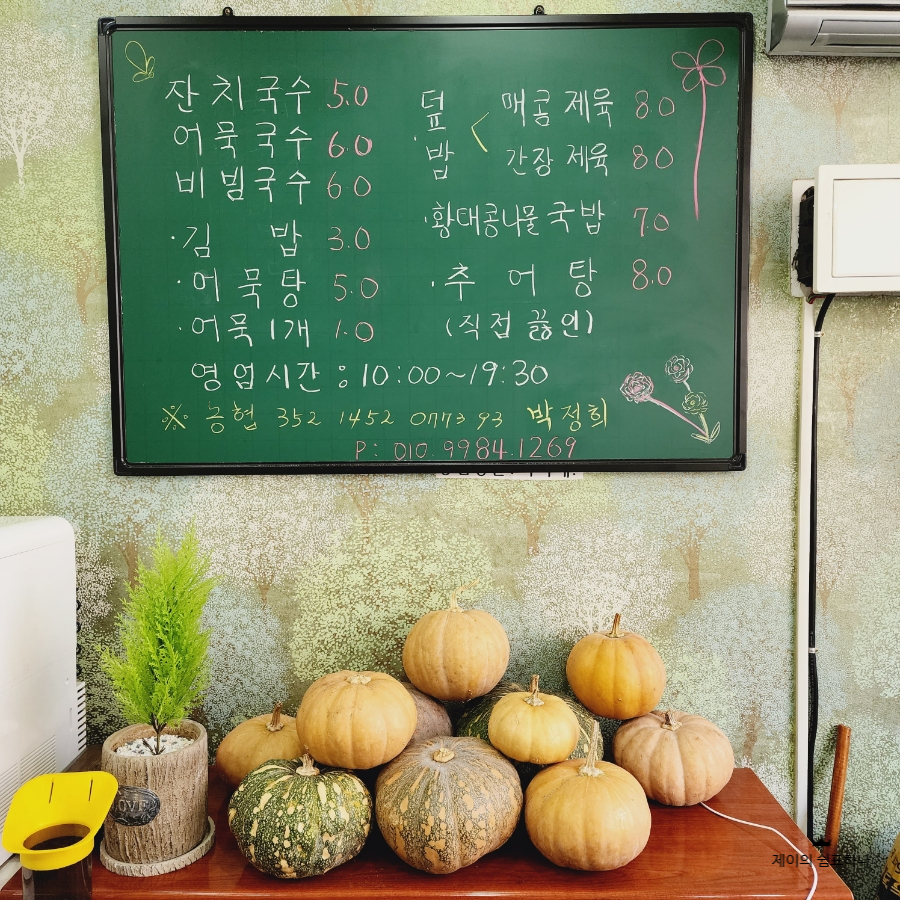 잔치국수 5.0
어묵국수 6.0
비빔국수 6.0
·김 밥 3.0
·어묵탕 5.0
·어묵1개 1.0
덮밥 < 매콤제육 8.0
간장제육 8.0
·황태콩나물국밥 7.0
·추어탕 8.0
(직접 끓인)
영업시간 : 10:00~19:30
※ 농협 352 1452 0773 93 박정희
P: 010.9984.1269
LOVE
제이의